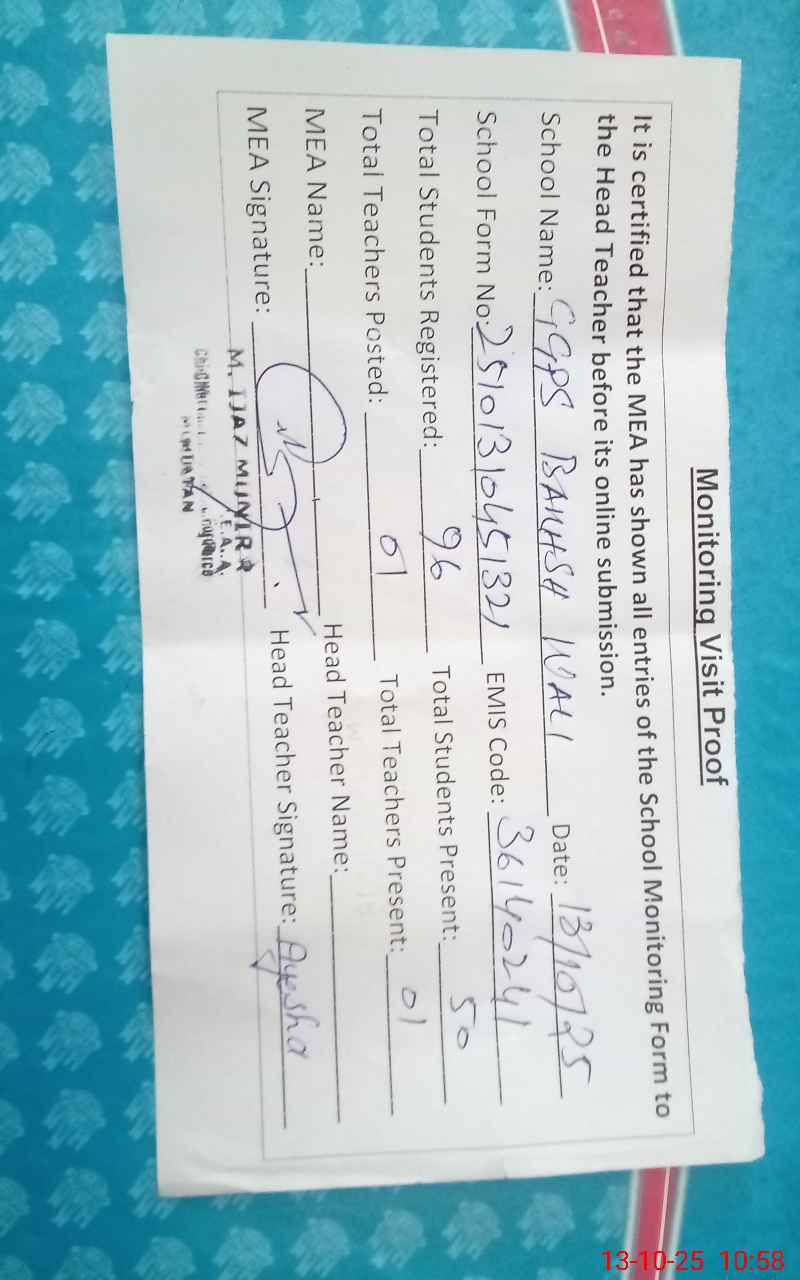 Monitoring Visit Proof
It is certified that the MEA has shown all entries of the School Monitoring Form to
the Head Teacher before its online submission.
School Name: GGPS BAKHSH WALI Date: 13/10/25
School Form No: 25101310451321 EMIS Code: 36140241
Total Students Registered: 96 Total Students Present: 50
Total Teachers Posted: 01 Total Teachers Present: 01
MEA Name: Head Teacher Name:
MEA Signature: Head Teacher Signature: Ayesha
M. IJAZ MUNIR
13-10-25 10:58